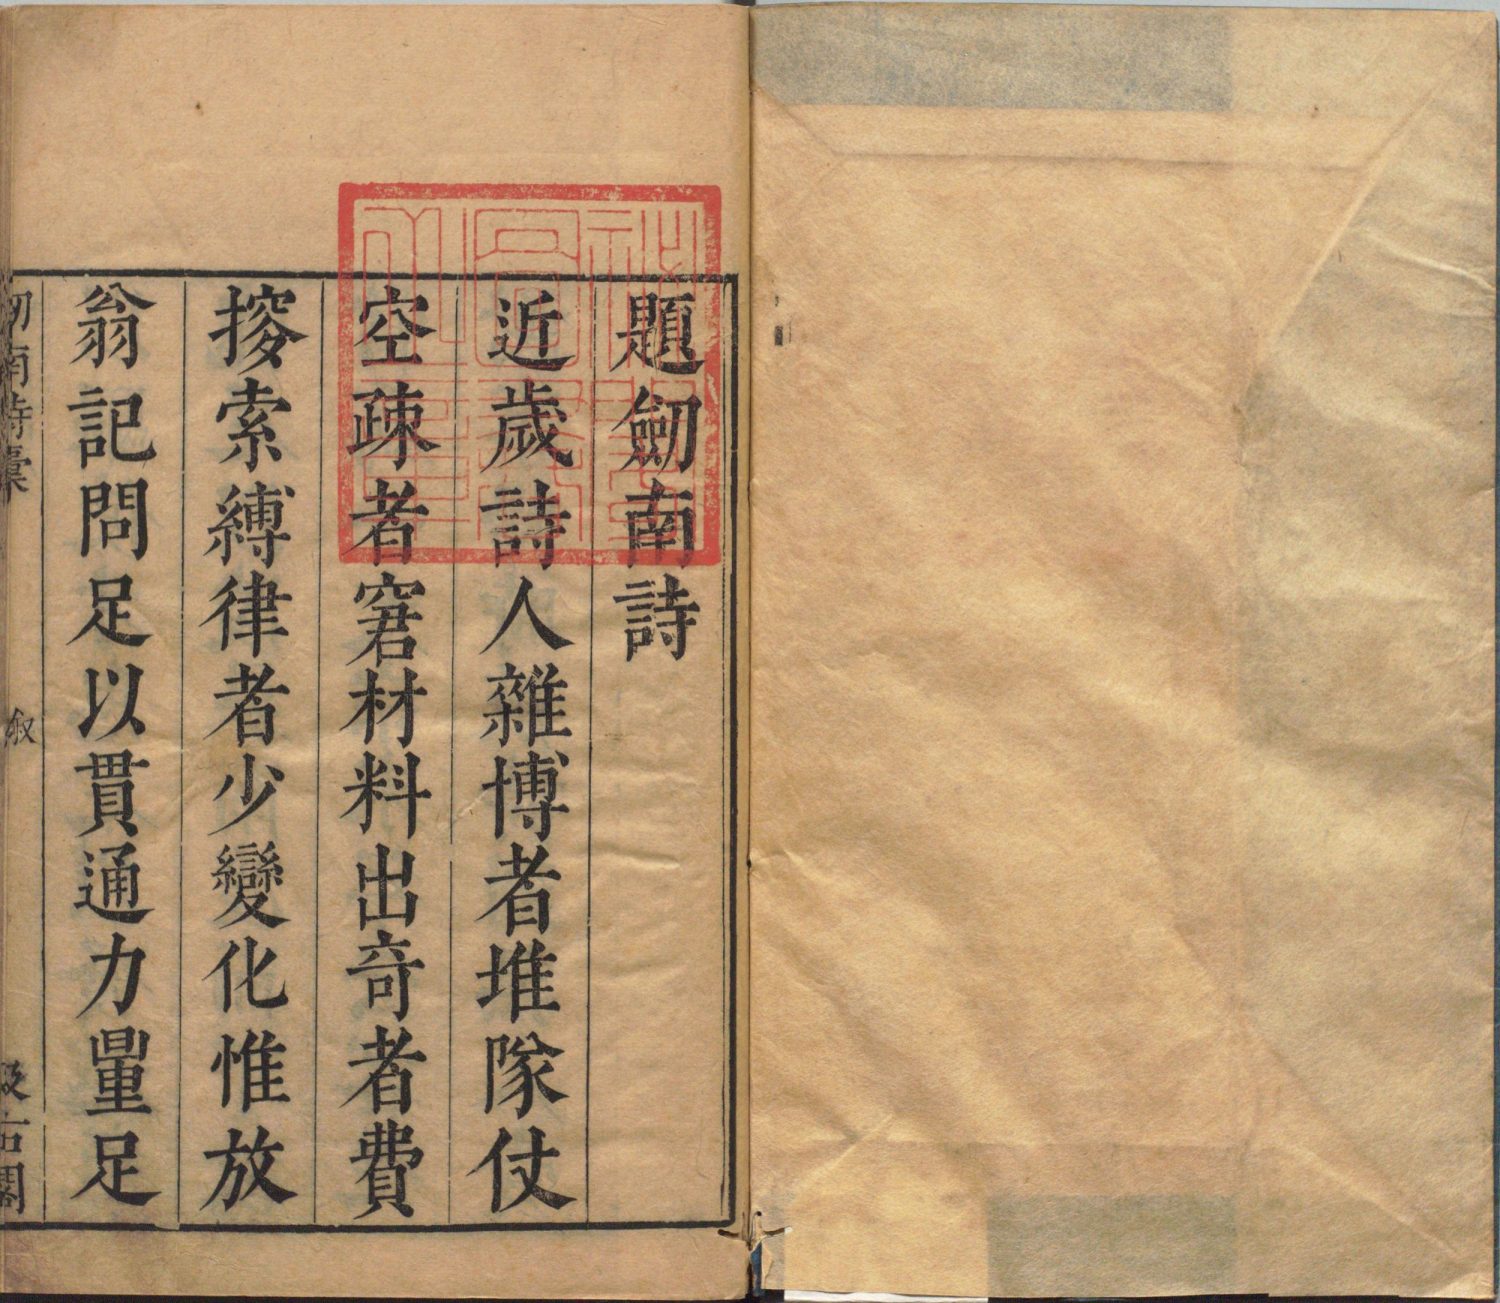 題劒南詩
近歲詩人雜博者堆隊仗
空疎者窘材料出奇者費
搜索縛律者少變化惟放
翁記問足以貫通力量足
劒南詩稾
叙
汲古閣